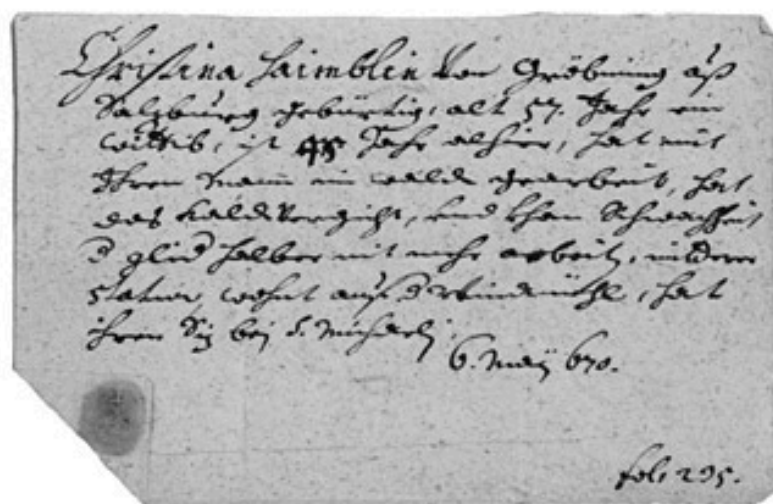 Christina Haimblin Von Gröbming auß
Salzburg gebürtig, alt 57. Jahr ein
wittib, ist Jahr alhier, hat mit
Ihren Mann im wald gearbeit, hat
das kalde Vergicht, und khan Schwachheit
d glid halber nit mehr arbeitn, mitdere
Statur, wohnt auf d Windmühl, hat
ihren Siz bej S. Michaeli
6. Maij 670.
fol: 295.